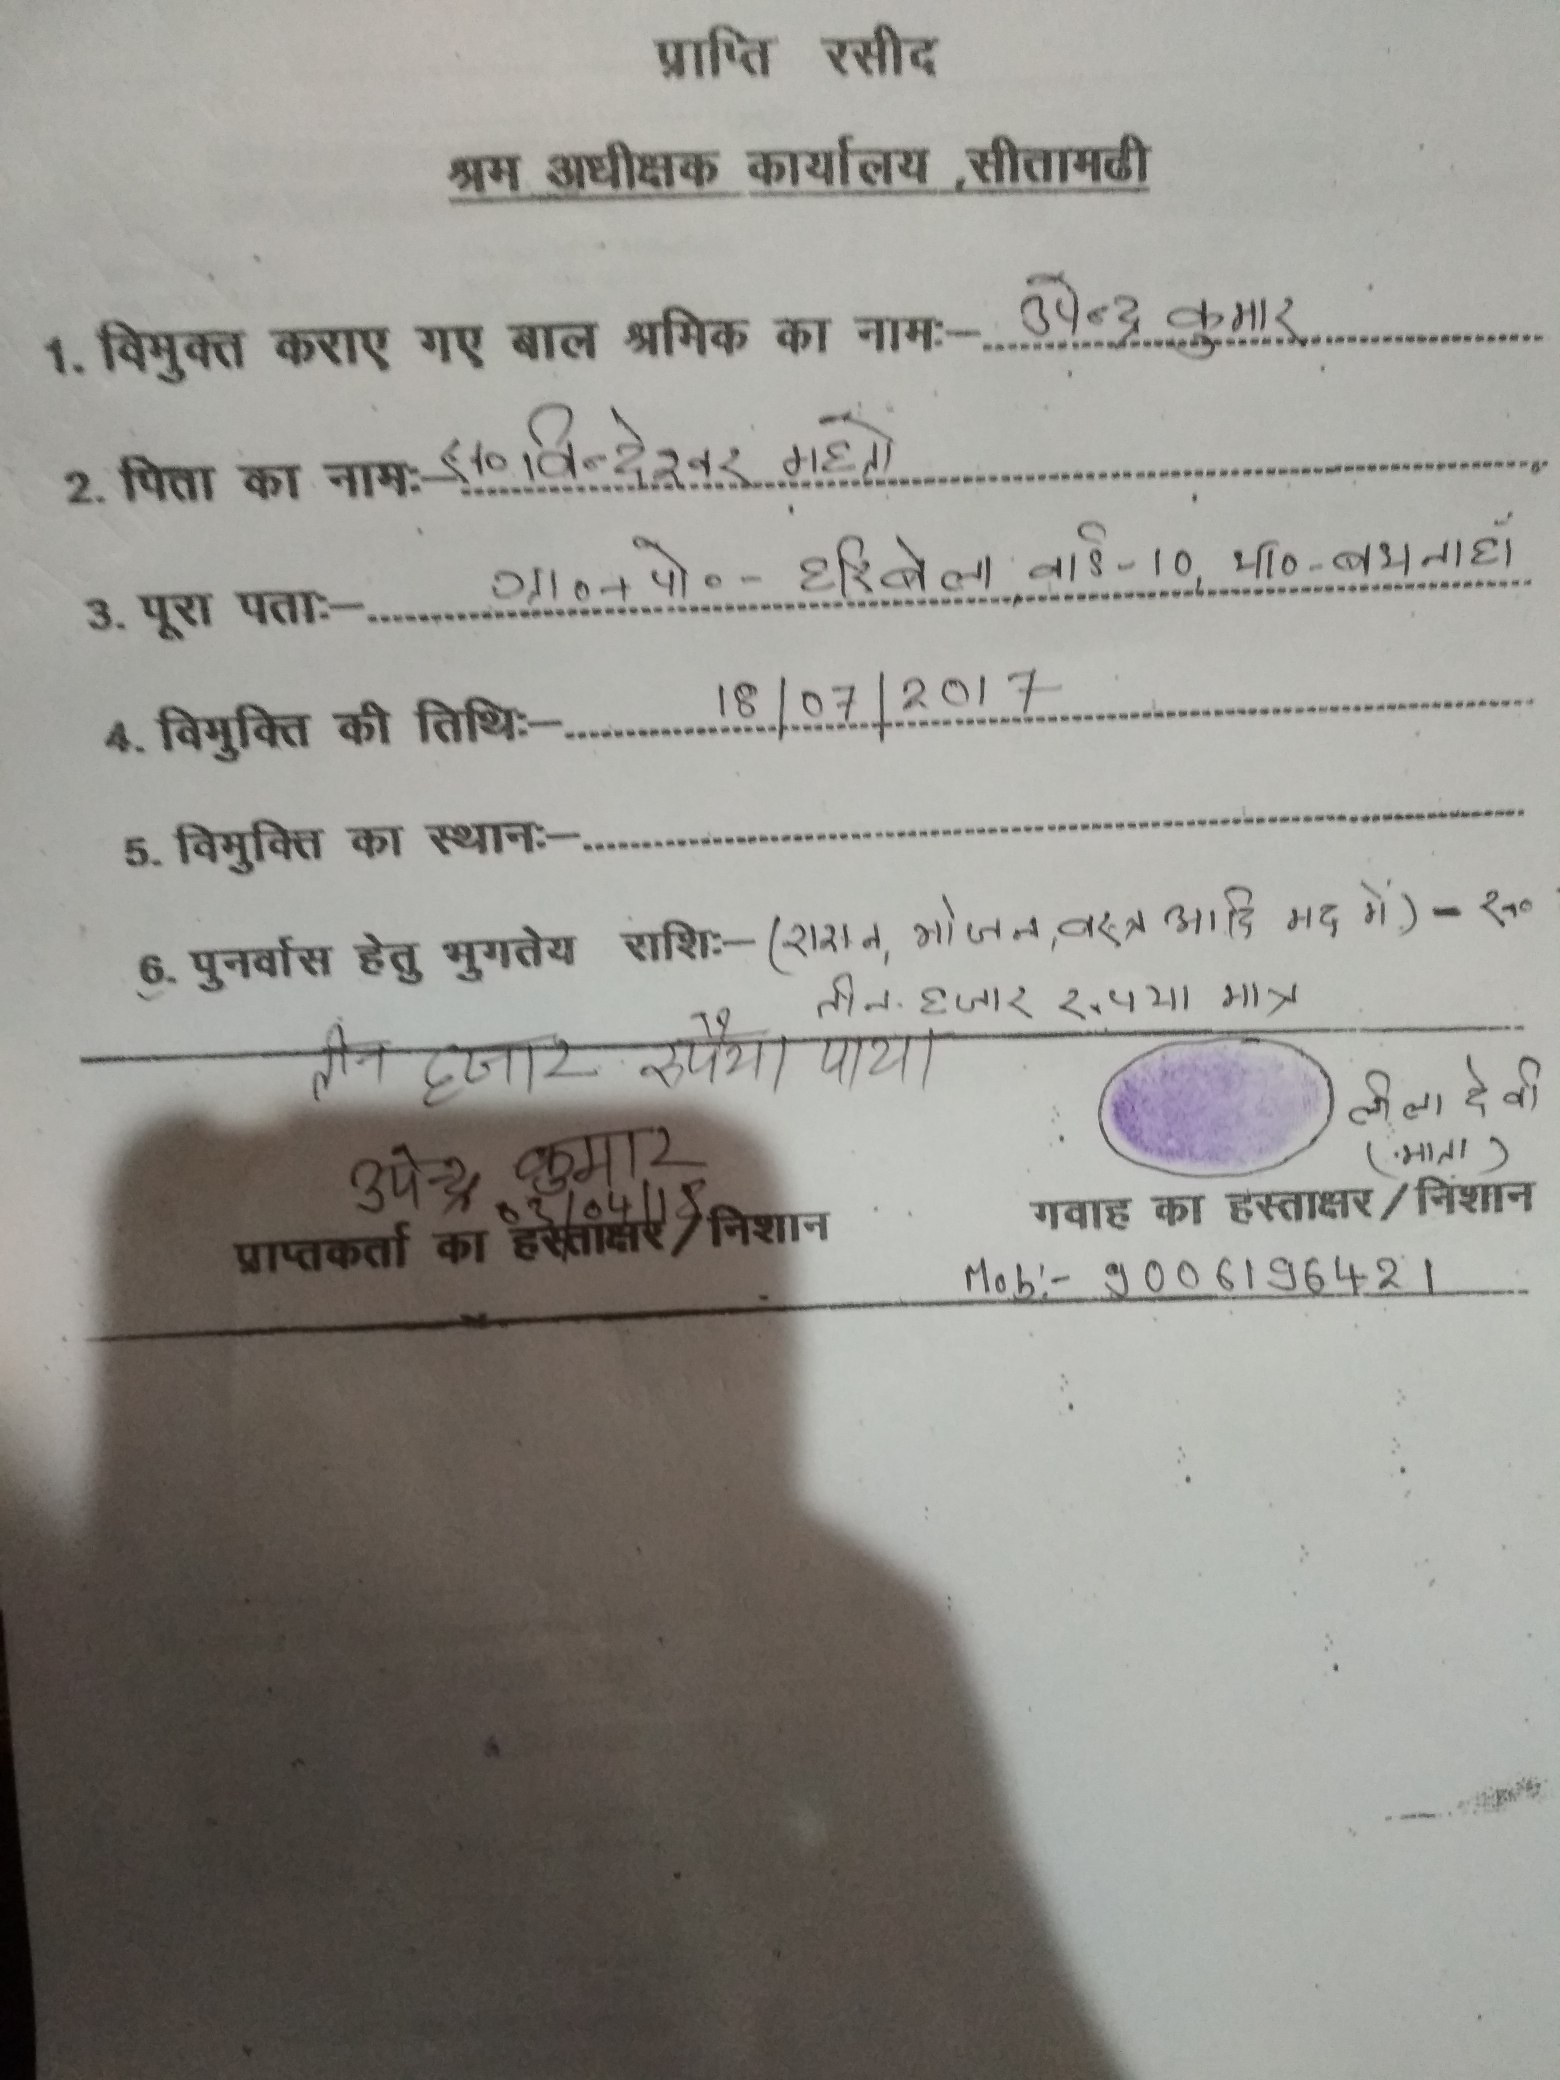 प्राप्ति रसीद
श्रम अधीक्षक कार्यालय ,सीतामढी
1. विमुक्त कराए गए बाल श्रमिक का नामः- उपेन्द्र कुमार
2. पिता का नामः- स्व० विन्देश्वर महतो
3. पूरा पताः- ग्रा०+पो०- हरिबेला, वार्ड-10, था०-बथनाहाँ
4. विमुक्ति की तिथिः- 18/07/2017
5. विमुक्ति का स्थानः-
6. पुनर्वास हेतु भुगतेय राशिः- (राशन, भोजन, वस्त्र आदि मद में) -
तीन हजार रुपया मात्र
तीन हजार रुपैया पाया
लीला देवी
(माता)
उपेन्द्र कुमार
03/04/18
प्राप्तकर्ता का हस्ताक्षर/निशान
गवाह का हस्ताक्षर/निशान
Mob:- 9006196421